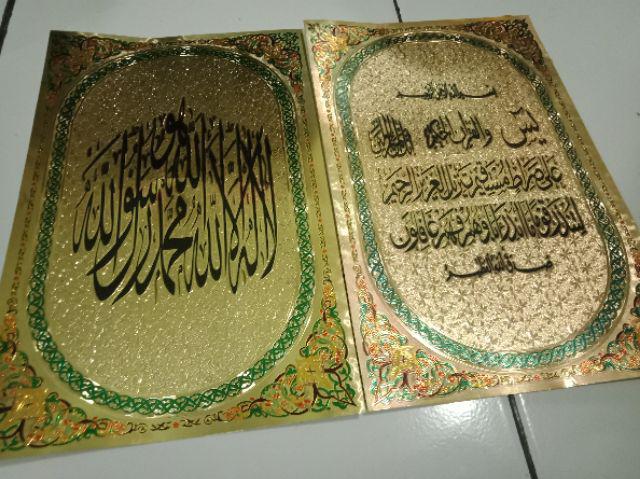 لا اله الا الله محمد رسول الله
بسم الله الرحمن الرحيم
يس والقرآن الحكيم انك لمن المرسلين
على صراط مستقيم تنزيل العزيز الرحيم
لتنذر قوما ما انذر اباؤهم فهم غافلون
صدق الله العظيم